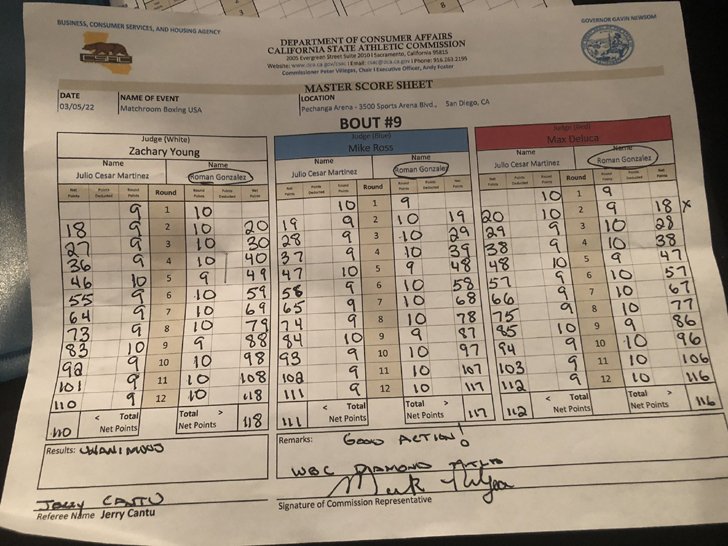 BUSINESS, CONSUMER SERVICES, AND HOUSING AGENCY
GOVERNOR GAVIN NEWSOM
CSAC
DEPARTMENT OF CONSUMER AFFAIRS
CALIFORNIA STATE ATHLETIC COMMISSION
2005 Evergreen Street Suite 2010 | Sacramento, California 95815
Website: www.dca.ca.gov/csac | Email: csac@dca.ca.gov | Phone: 916.263.2195
Commissioner Peter Villegas, Chair | Executive Officer, Andy Foster
MASTER SCORE SHEET
DATE NAME OF EVENT LOCATION
03/05/22 Matchroom Boxing USA Pechanga Arena - 3500 Sports Arena Blvd., San Diego, CA
BOUT #9
Judge (White) Judge (Blue) Judge (Red)
Zachary Young Mike Ross Max Deluca
Name Name Name Name Name
Julio Cesar Martinez Roman Gonzalez Julio Cesar Martinez Roman Gonzalez Julio Cesar Martinez Roman Gonzalez
Net Points Points Deducted Round Points Round Round Points Points Deducted Net Points Net Points Points Deducted Round Points Round Round Points Points Deducted Net Points Net Points Points Deducted Round Points Round Round Points Points Deducted Net Points
9 1 10 10 1 9 10 1 9
18 9 2 10 20 19 9 2 10 19 20 10 2 9 18 x
27 9 3 10 30 28 9 3 10 29 29 9 3 10 28
36 9 4 10 40 37 9 4 10 39 38 9 4 10 38
46 10 5 9 49 47 10 5 9 48 48 10 5 9 47
55 9 6 10 59 56 9 6 10 58 57 9 6 10 57
64 9 7 10 69 65 9 7 10 68 66 9 7 10 67
73 9 8 10 79 74 9 8 10 78 75 9 8 10 77
83 10 9 9 88 84 10 9 9 87 85 10 9 9 86
92 9 10 10 98 93 9 10 10 97 94 9 10 10 96
101 9 11 10 108 102 9 11 10 107 103 9 11 10 106
110 9 12 10 118 111 9 12 10 117 112 9 12 10 116
110 < Total Net Points Total > Net Points 118 111 < Total Net Points Total > Net Points 117 112 < Total Net Points Total > Net Points 116
Results: UNANIMOUS
Remarks: GOOD ACTION!
WBC DIAMOND
JERRY CANTU
Referee Name Jerry Cantu
Signature of Commission Representative